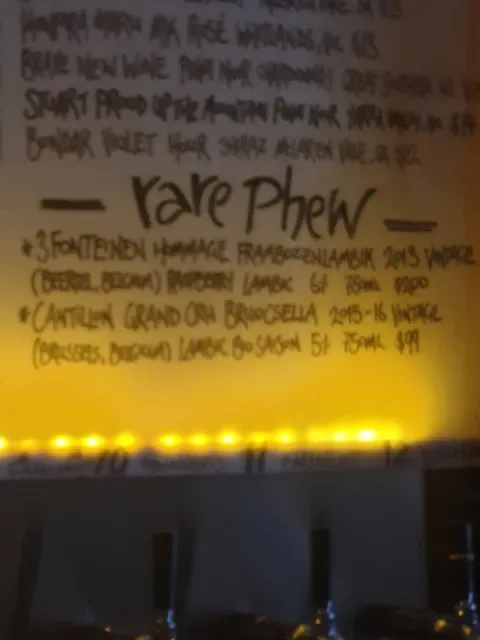 ROSÉ WHITLANDS, VIC $13
BRAVE NEW WINE PINOT NOIR CHARDONNAY GREAT SOUTHERN
STUART PROUD UP THE MOUNTAIN PINOT NOIR YARRA VALLEY, VIC $14
BONDAR VIOLET HOUR SHIRAZ MCLAREN VALE, SA $12
— rare Phew —
* 3 FONTEINEN HOMMAGE FRAMBOZENLAMBIK 2013 VINTAGE
(BEERSEL, BELGIUM) RASPBERRY LAMBIC 6% 750ML $200
* CANTILLON GRAND CRU BRUOCSELLA 2015-16 VINTAGE
(BRUSSELS, BELGIUM) LAMBIC BIO SAISON 5% 750ML $99
10 11 12